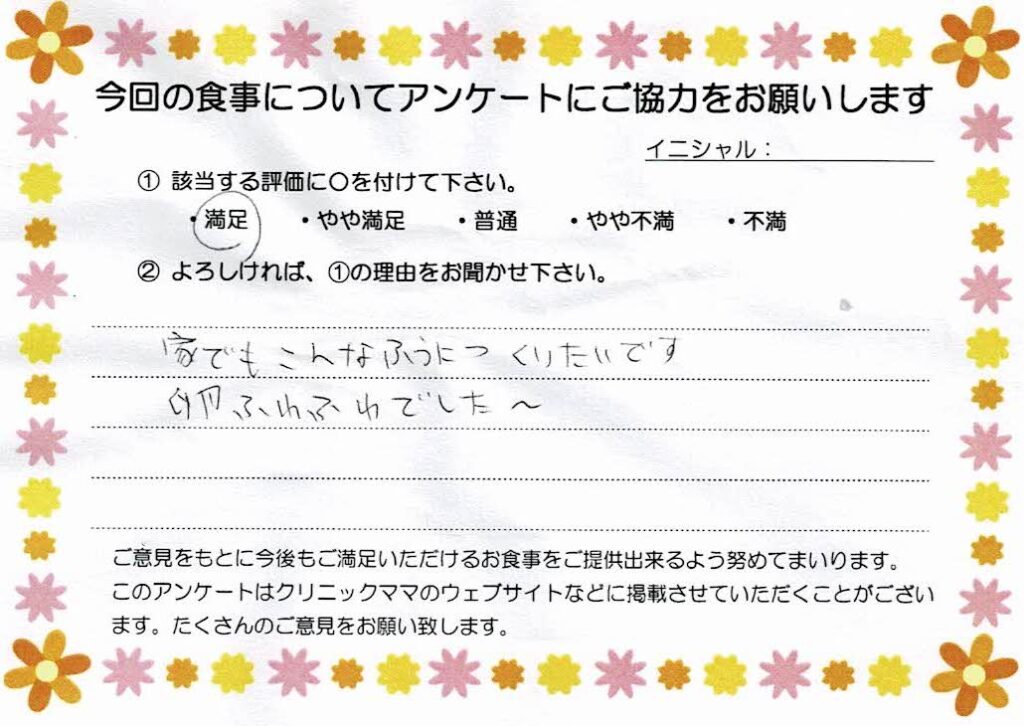 今回の食事についてアンケートにご協力をお願いします
イニシャル：
① 該当する評価に〇を付けて下さい。
・満足 ・やや満足 ・普通 ・やや不満 ・不満
② よろしければ、①の理由をお聞かせ下さい。
家でもこんなふうにつくりたいです
卵ふわふわでした～
ご意見をもとに今後もご満足いただけるお食事をご提供出来るよう努めてまいります。
このアンケートはクリニックママのウェブサイトなどに掲載させていただくことがござい
ます。たくさんのご意見をお願い致します。